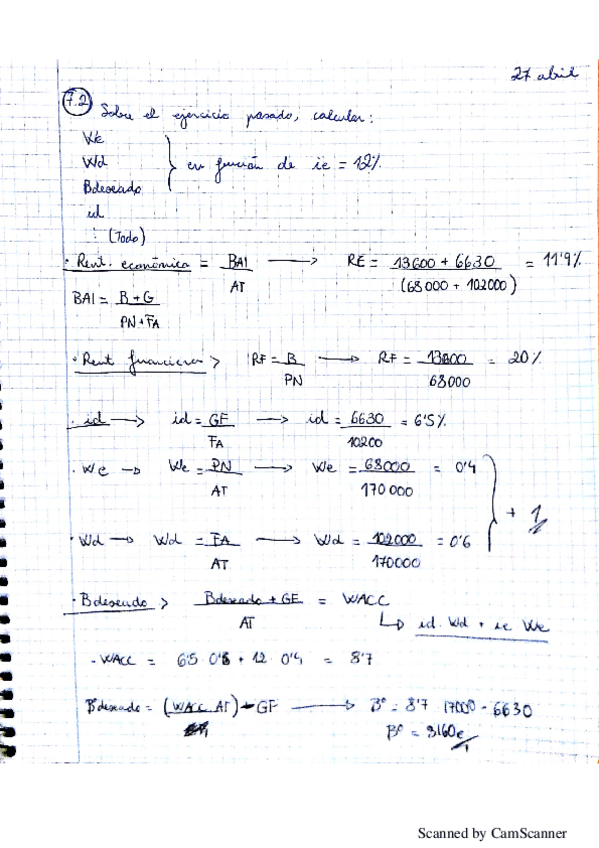 27 abril
7.2 Sobre el ejercicio pasado, calcular:
We
Wd
Bdeseado
id
} en función de ie = 12%
⋮ (Todo)
· Rent. económica = BAI / AT ⟶ RE = 13600 + 6630 / (68000 + 102000) = 11'9%
BAI = B + G / PN + FA
· Rent financiera > RF = B / PN ⟶ RF = 13600 / 68000 = 20%
· id ⟶ id = GF / FA ⟶ id = 6630 / 10200 = 6'5%
· We → We = PN / AT ⟶ We = 68000 / 170000 = 0'4
} + 1
· Wd ⟶ Wd = FA / AT ⟶ Wd = 102000 / 170000 = 0'6
· Bdeseado > Bdeseado + GF / AT = WACC
↳ id. Wd + ie We
- WACC = 6'5 · 0'6 + 12 · 0'4 = 8'7
Bºdeseado = (WACC AT) - GF ⟶ Bº = 8'7 · 17000 - 6630
Bº = 8160€
Scanned by CamScanner